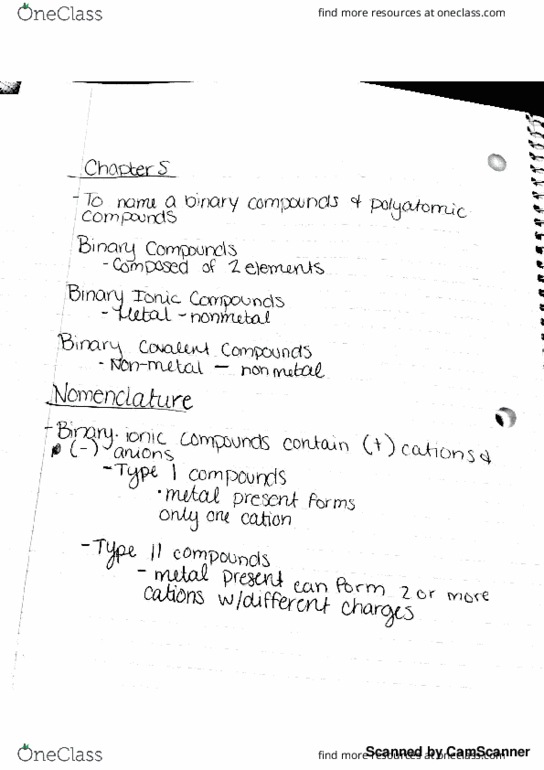 OneClass
find more resources at oneclass.com
Chapter 5
- To name a binary compounds & polyatomic
compounds
Binary Compounds
- Composed of 2 elements
Binary Ionic Compounds
- Metal - nonmetal
Binary Covalent Compounds
- Non-metal - nonmetal
Nomenclature
- Binary ionic compounds contain (+) cations &
(-) anions
- Type I compounds
· metal present forms
only one cation
- Type II compounds
- metal present can form 2 or more
cations w/different charges
OneClass
find more resources at oneclass.com
Scanned by CamScanner